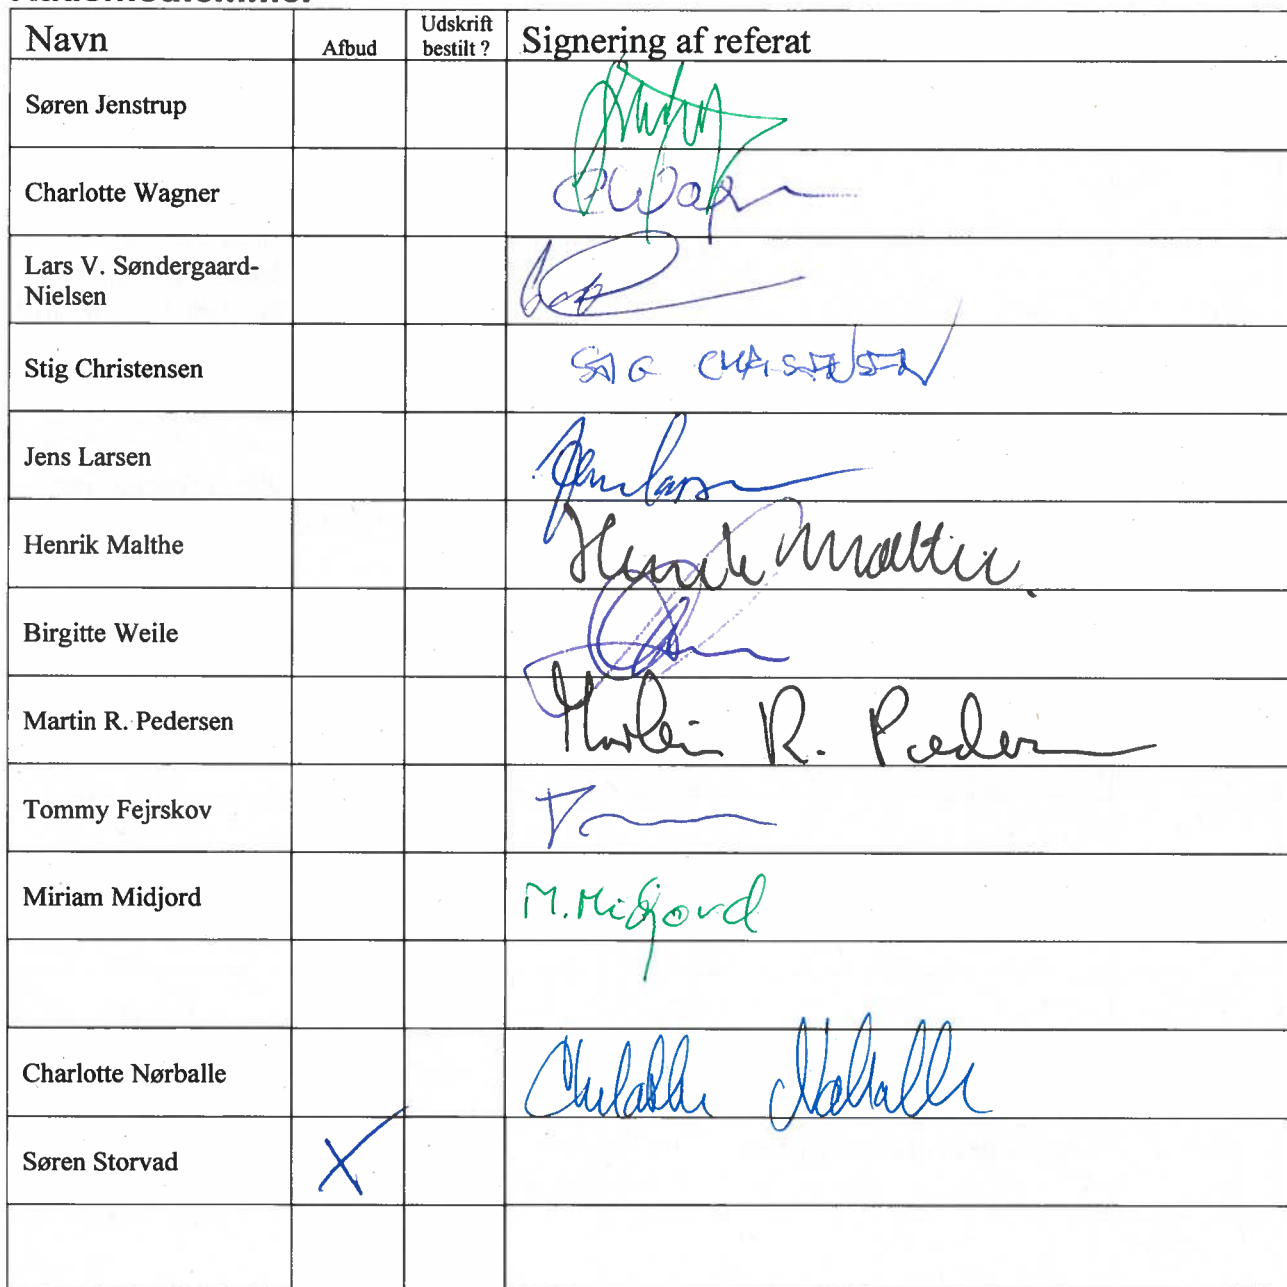 Navn Afbud Udskrift bestilt ? Signering af referat
Søren Jenstrup
Charlotte Wagner CWagn
Lars V. Søndergaard-
Nielsen
Stig Christensen STIG CHRISTENSEN
Jens Larsen Jens Larsen
Henrik Malthe Henrik Malthe
Birgitte Weile
Martin R. Pedersen Martin R. Pedersen
Tommy Fejrskov
Miriam Midjord M. Midjord
Charlotte Nørballe Charlotte Nørballe
Søren Storvad X